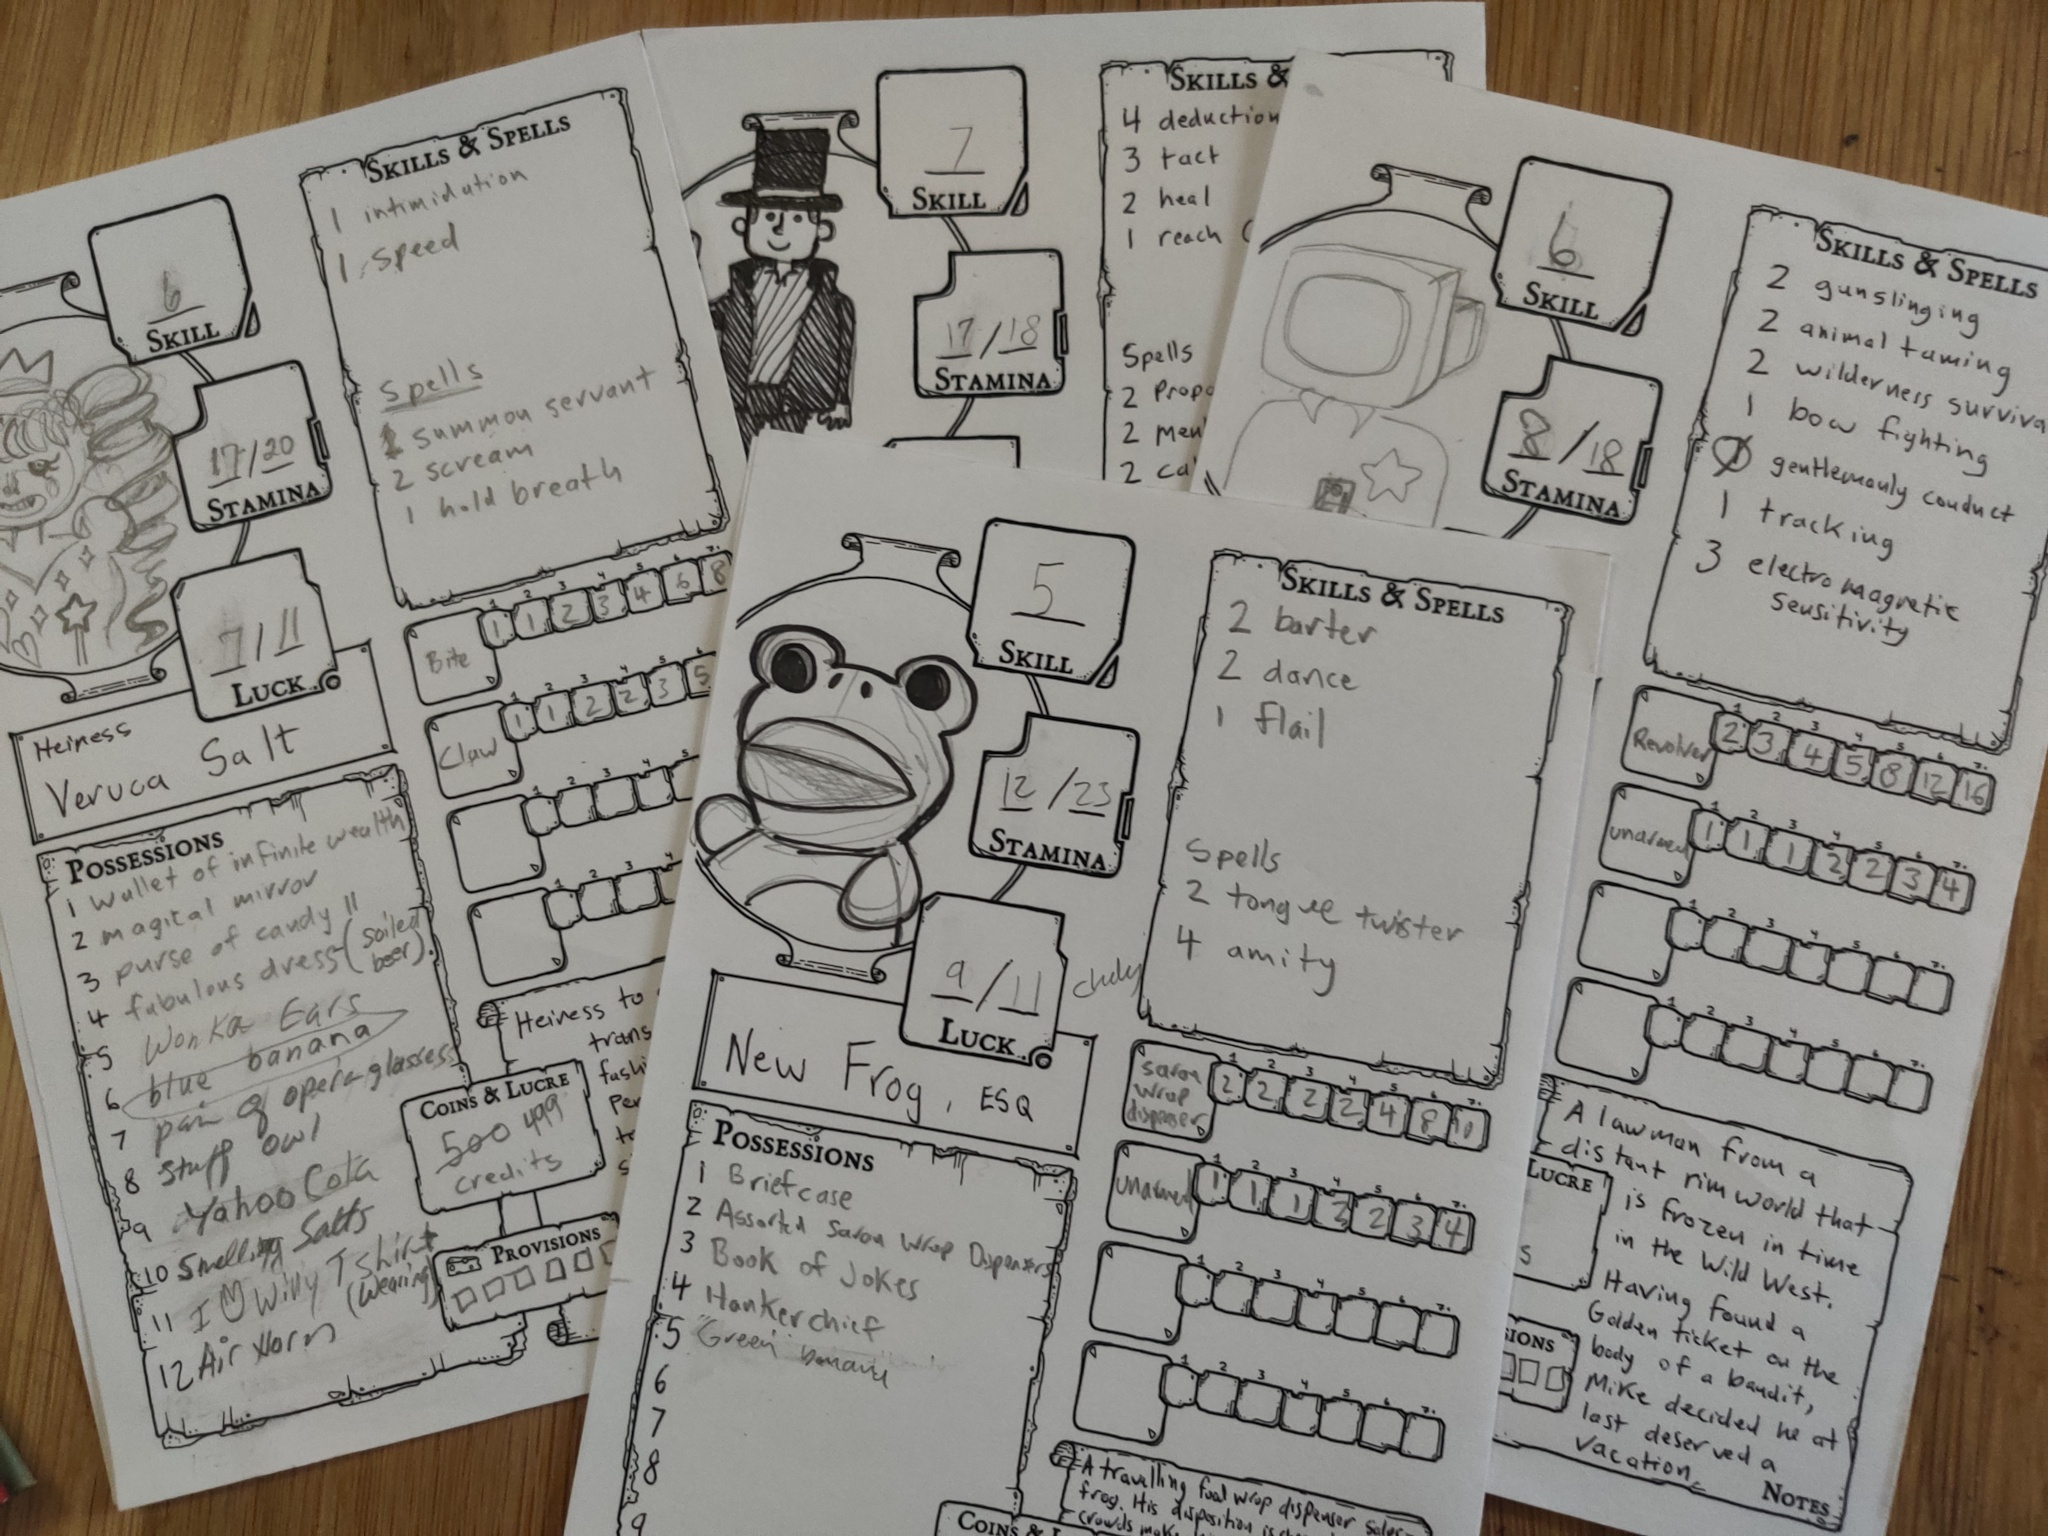 6
SKILL
17/20
STAMINA
7/11
LUCK
Heiness
Veruca Salt
SKILLS & SPELLS
1 intimidation
1 speed
Spells
2 summon servant
2 scream
1 hold breath
1 2 3 4 5 6 7+
Bite 1 1 2 3 4 6 8
1 2 3 4 5
Claw 1 1 2 2 3 5
2 3 4 5
2 3 4
POSSESSIONS
1 wallet of infinite wealth
2 magical mirror
3 purse of candy 11
4 fabulous dress (soiled
beer)
5 Wonka Ears
6 blue banana
7 pair of opera glasses
8 Stuff owl
9 Yahoo Cola
10 Smelling Salts
11 I Willy T shirt
(wearing)
12 Air Horn
COINS & LUCRE
500 499
credits
PROVISIONS
Heiness to
trans
fashi
Per
to
7
SKILL
17/18
STAMINA
SKILLS &
4 deduction
3 tact
2 heal
1 reach (
Spells
2 Propo
2 men
2 ca
6
SKILL
8/18
STAMINA
SKILLS & SPELLS
2 gunslinging
2 animal taming
2 wilderness surviva
1 bow fighting
gentlemanly conduct
1 tracking
3 electromagnetic
sensitivity
1 2 3 4 5 6 7+
Revolver 2 3 4 5 8 12 16
1 2 3 4 5 6 7+
unarmed 1 1 1 2 2 3 4
1 2 3 4 5 6 7+
1 2 3 4 5 6 7+
LUCRE
S
IONS
A lawman from a
distant rim world that
is frozen in time
in the Wild West.
Having found a
Golden ticket on the
body of a bandit,
Mike decided he at
last deserved a
vacation.
NOTES
5
SKILL
12/23
STAMINA
9/11
LUCK
New Frog, ESQ
SKILLS & SPELLS
2 barter
2 dance
1 flail
Spells
2 tongue twister
4 amity
1 2 3 4 5 6 7+
saran
wrap
dispenser 2 2 2 2 4 8 10
1 2 3 4 5 6 7+
unarmed 1 1 1 2 2 3 4
1 2 3 4 5 6 7+
1 2 3 4 5 6 7+
POSSESSIONS
1 Briefcase
2 Assorted Saran Wrap Dispensers
3 Book of Jokes
4 Hankerchief
5 "Green" banana
6
7
8
9
COINS & L
A travelling food wrap dispenser sales-
frog. His disposition is
crowds make